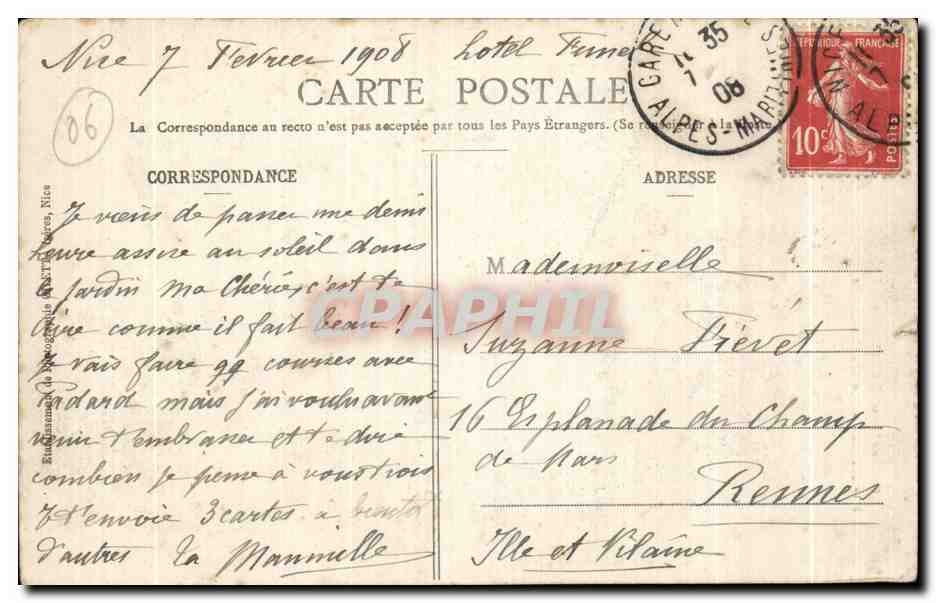 Nice 7 Février 1908 hotel
CARTE POSTALE
La Correspondance au recto n'est pas acceptée par tous les Pays Étrangers. (Se renseigner à la
06
CORRESPONDANCE
Je viens de passer une demi
heure assise au soleil dans
le jardin ma Chérie, c'est te
dire comme il fait beau !
Je vais faire qq courses avec
mais j'ai voulu avant
venir t'embrasser et te dire
combien je pense à vous trois
Je t'envoie 3 cartes à bientôt
d'autres Ta Mammille
Etablissement de Photographie Nice
ADRESSE
Mademoiselle
Suzanne Frévet
16 Esplanade du Champ
de Mars
Rennes
Ille et Vilaine
GARE
35
7
08
ALPES-MARITIMES
RÉPUBLIQUE FRANÇAISE
10c
POSTES
NICE
35
7
ALP
CPAPHIL